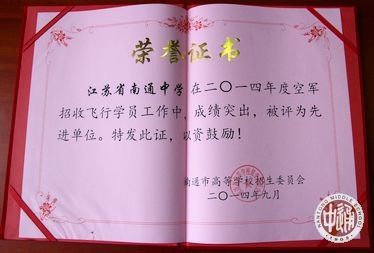 荣誉证书
江苏省南通中学在二〇一四年度空军
招收飞行学员工作中,成绩突出,被评为先
进单位。特发此证,以资鼓励!
南通市高等学校招生委员会
二〇一四年九月
NANTONG MIDDLE SCHOOL
1909